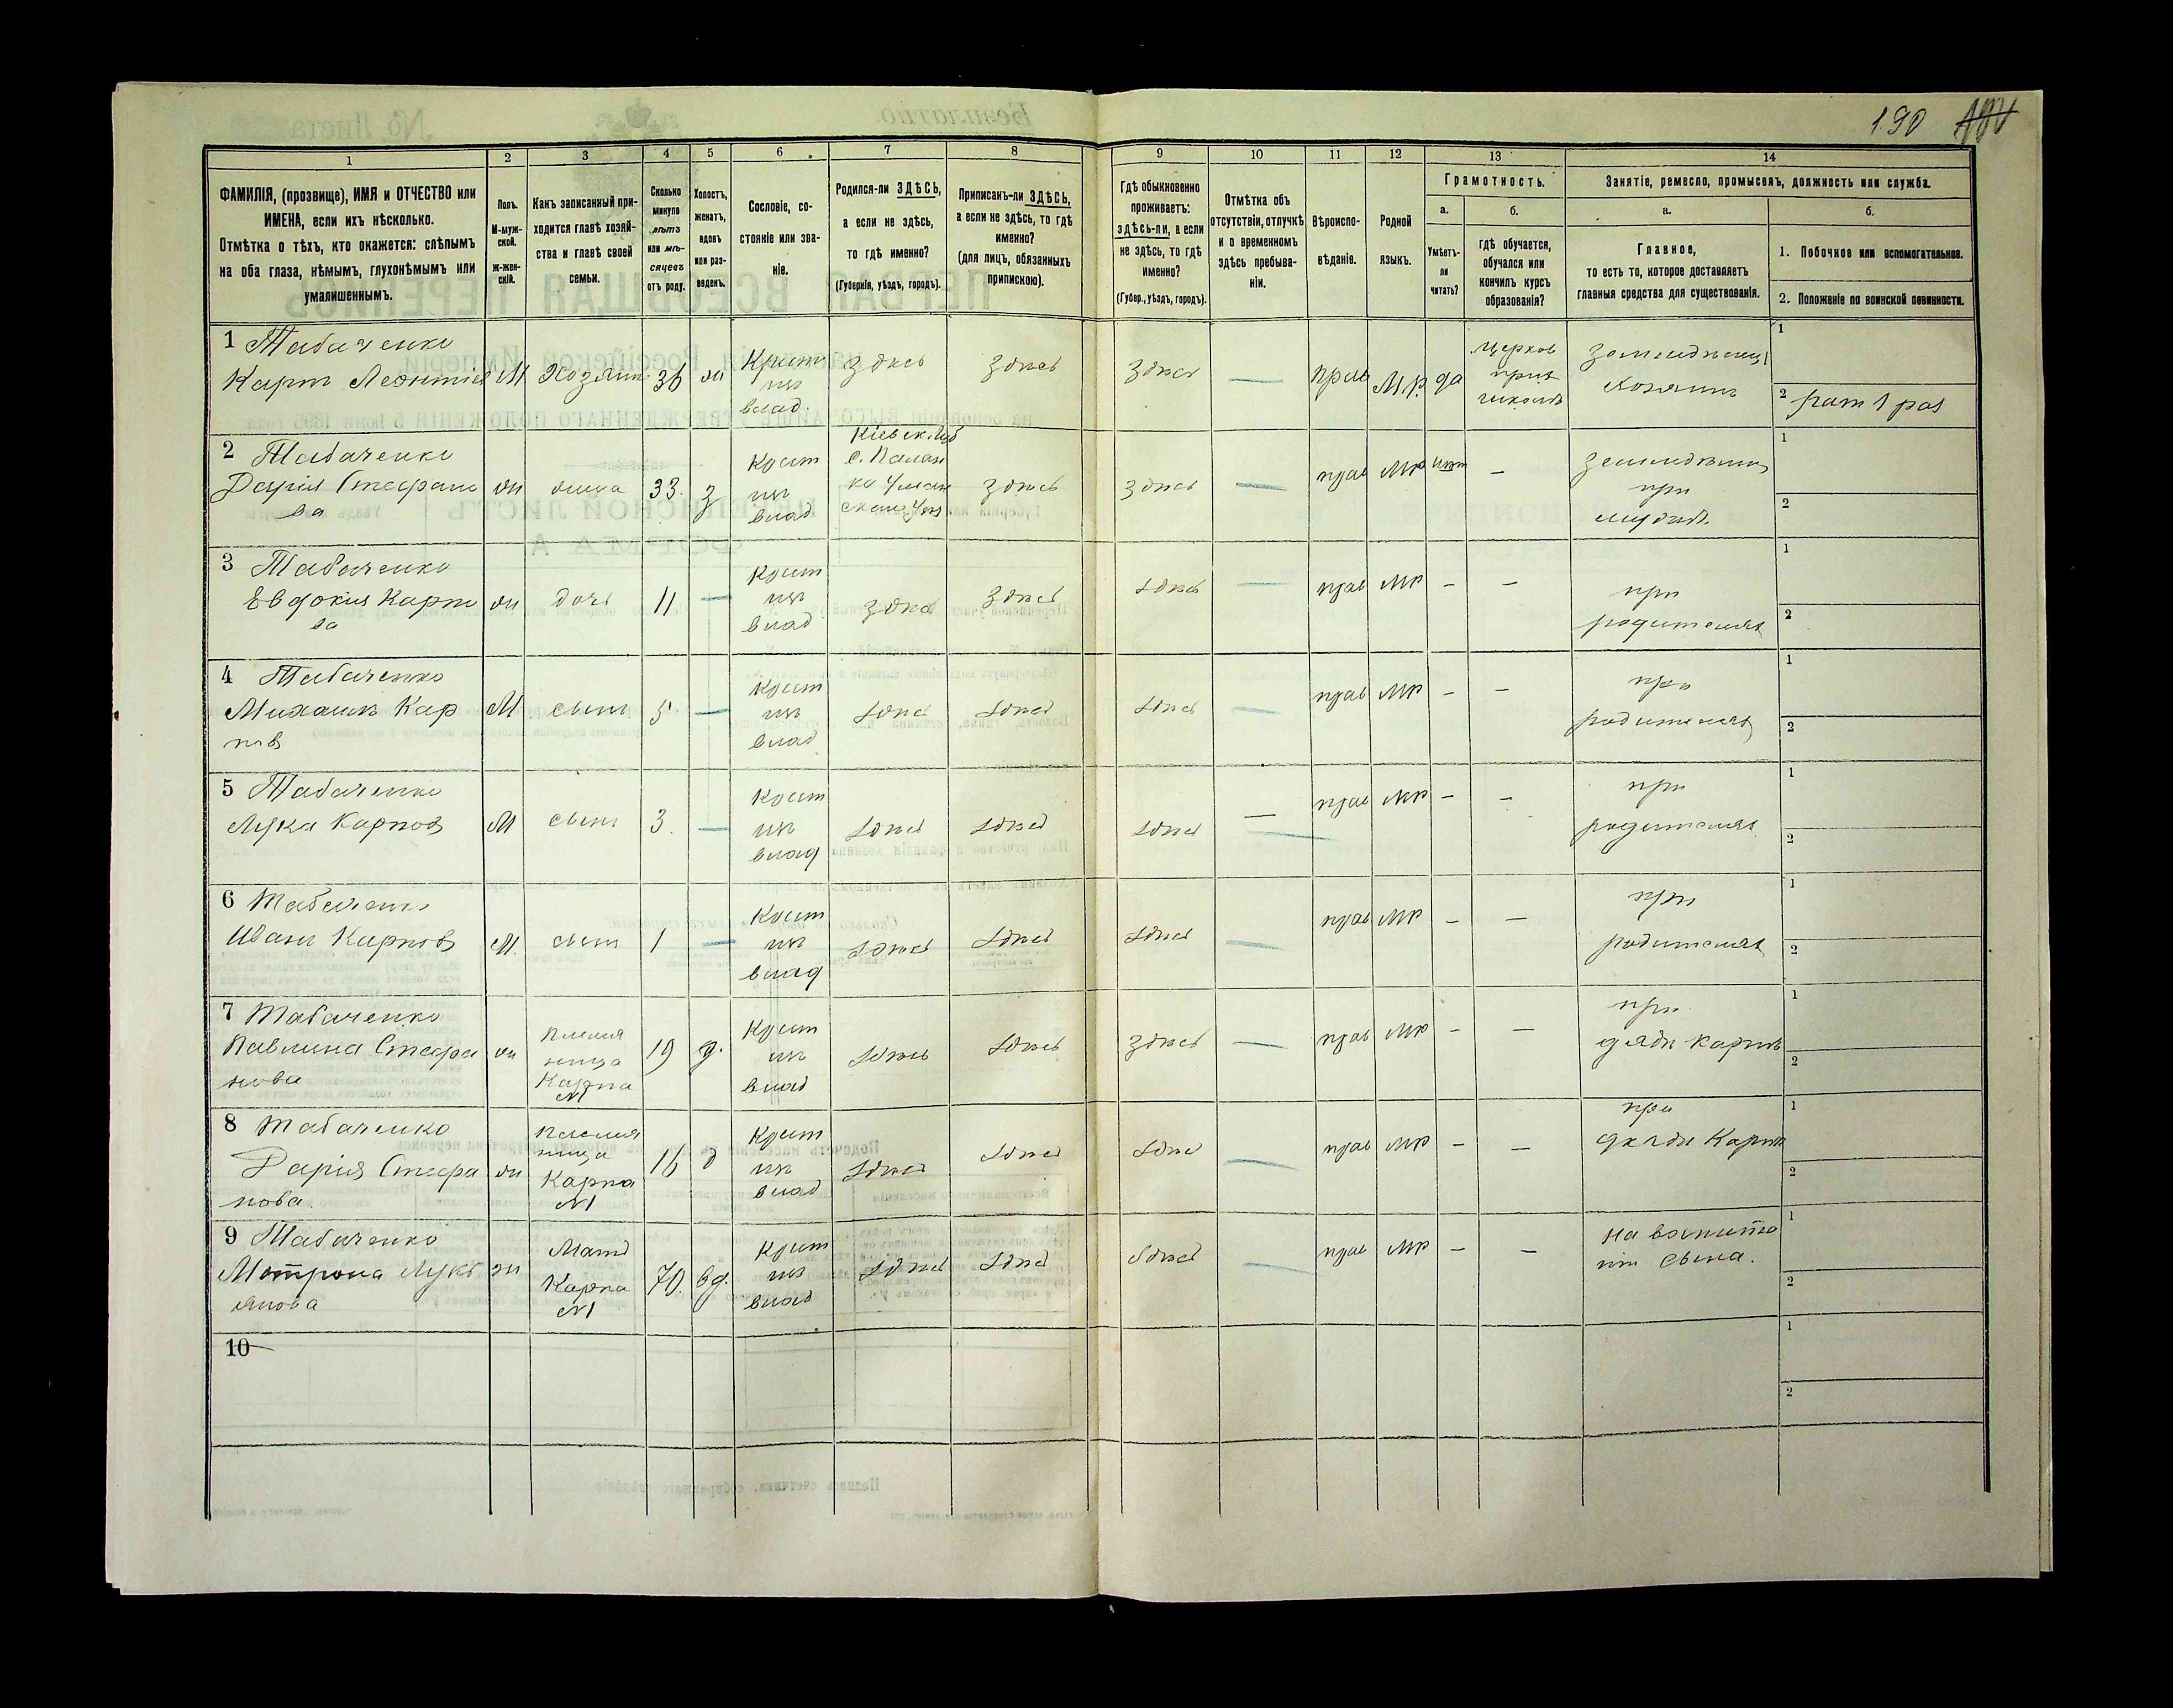 190
1 2 3 4 5 6 7 8 9 10 11 12 13 14
ФАМИЛІЯ, (прозвище), ИМЯ и ОТЧЕСТВО или
ИМЕНА, если ихъ нѣсколько.
Отмѣтка о тѣхъ, кто окажется: слѣпымъ
на оба глаза, нѣмымъ, глухонѣмымъ или
умалишеннымъ.
Полъ.
М-муж-
ской.
ж-жен-
скій.
Какъ записанный при-
ходится главѣ хозяй-
ства и главѣ своей
семьи.
Сколько
минуло
лѣтъ
или мѣ-
сяцевъ
отъ роду.
Холостъ,
женатъ,
вдовъ
или раз-
веденъ.
Сословіе, со-
стояніе или зва-
ніе.
Родился-ли ЗДѢСЬ,
а если не здѣсь,
то гдѣ именно?
(Губернія, уѣздъ, городъ).
Приписанъ-ли ЗДѢСЬ,
а если не здѣсь, то гдѣ
именно?
(для лицъ, обязанныхъ
припискою).
Гдѣ обыкновенно
проживаетъ:
здѣсь-ли, а если
не здѣсь, то гдѣ
именно?
(Губер., уѣздъ, городъ).
Отмѣтка объ
отсутствіи, отлучкѣ
и о временномъ
здѣсь пребыва-
ніи.
Вѣроиспо-
вѣданіе.
Родной
языкъ.
Грамотность.
а.
Умѣетъ-
ли
читать?
б.
Гдѣ обучается,
обучался или
кончилъ курсъ
образованія?
Занятіе, ремесло, промыселъ, должность или служба.
а.
Главное,
то есть то, которое доставляетъ
главныя средства для существованія.
б.
1. Побочное или вспомогательное.
2. Положеніе по воинской повинности.
1 Табаченко
Карп Леонтіев М Хозяин 36 ж Крест из влад здѣсь здѣсь здѣсь — прав М.р. да церков прих школѣ
1
2 рат 1 раз
2 Табаченко
Дарія Стефано
ва ж жена 33 з Крест из влад Кіевск. губ с. Палан здѣсь здѣсь — прав мр нет —
при
1
2
3 Табаченко
Евдокия Карпо
ва ж дочь 11 — Крест из влад здѣсь здѣсь здѣсь — прав мр — — при родителях
1
2
4 Табаченко
Михаилъ Кар
пов М сынъ 5 — Крест из влад здѣсь здѣсь здѣсь — прав мр — — при родителях
1
2
5 Табаченко
Лука Карпов М сынъ 3 — Крест из влад здѣсь здѣсь здѣсь — прав мр — — при родителях
1
2
6 Табаченко
Иван Карпов М. сынъ 1 — Крест из влад здѣсь здѣсь здѣсь — прав мр — — при родителях
1
2
7 Табаченко
Павлина Стефа
нова ж племя
ница
Карпа
№1 19 д. Крест из влад здѣсь здѣсь здѣсь — прав мр — — при дяди Карпѣ
1
2
8 Табаченко
Дарія Стефа
нова. ж племя
ница
Карпа
№1 16 д Крест из влад здѣсь здѣсь здѣсь — прав мр — — при дяди Карпѣ
1
2
9 Табаченко
Мотрона Лукь
янова ж Мать
Карпа
№1 70. вд. Крест из влад здѣсь здѣсь здѣсь — прав мр — — сына.
1
2
10
1
2